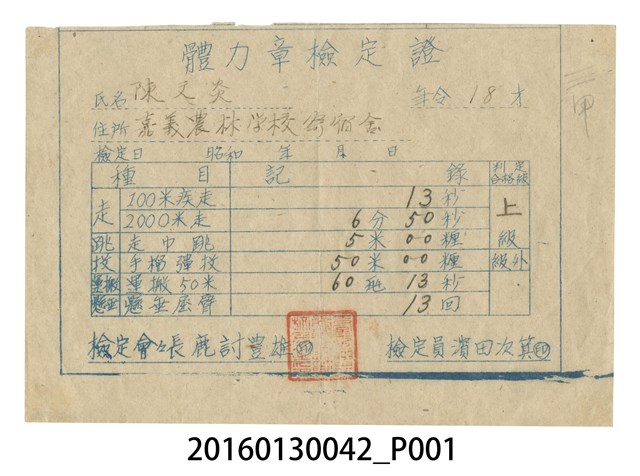 體力章檢定證
氏名 陳文炎 年令 18才
住所 嘉義農林学校寄宿舎
三甲
檢定日 昭和 年 月 日
種目 記錄 判定合格級
走 100米疾走 13秒 上
2000米走 6分50秒
跳 走巾跳 5米00糎 級
投 手榴彈投 50米00糎 級外
運搬 運搬50米 60瓩 13秒
懸垂 懸垂屈臂 13回
檢定會々長 鹿討豊雄㊞ 檢定員 濱田次箕㊞
20160130042_P001